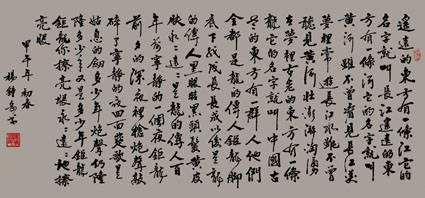 遥遠的東方有一條江它的
名字就叫長江遥遠的東
方有一條河它的名字就叫
黄河雖不曾看見長江美
夢裡常遊長江水雖不曾
聽見黄河壮澎湃洶湧
在夢裡古老的東方有一條
龍它的名字就叫中國古
老的東方有一群人他們
全都是龍的傳人巨龍脚
底下我成長長成以後是龍
的傳人黑眼睛黑頭髮黄皮
膚永々遠々是龍的傳人百
年前寧静的一個夜巨龍
前夕的深夜裡槍炮聲敲
碎了寧静的夜四面楚歌是
姑息的劍多少年炮聲仍隆
隆多少年又多少年巨龍
巨龍你擦亮眼永々遠々地擦
亮眼
甲午年初春